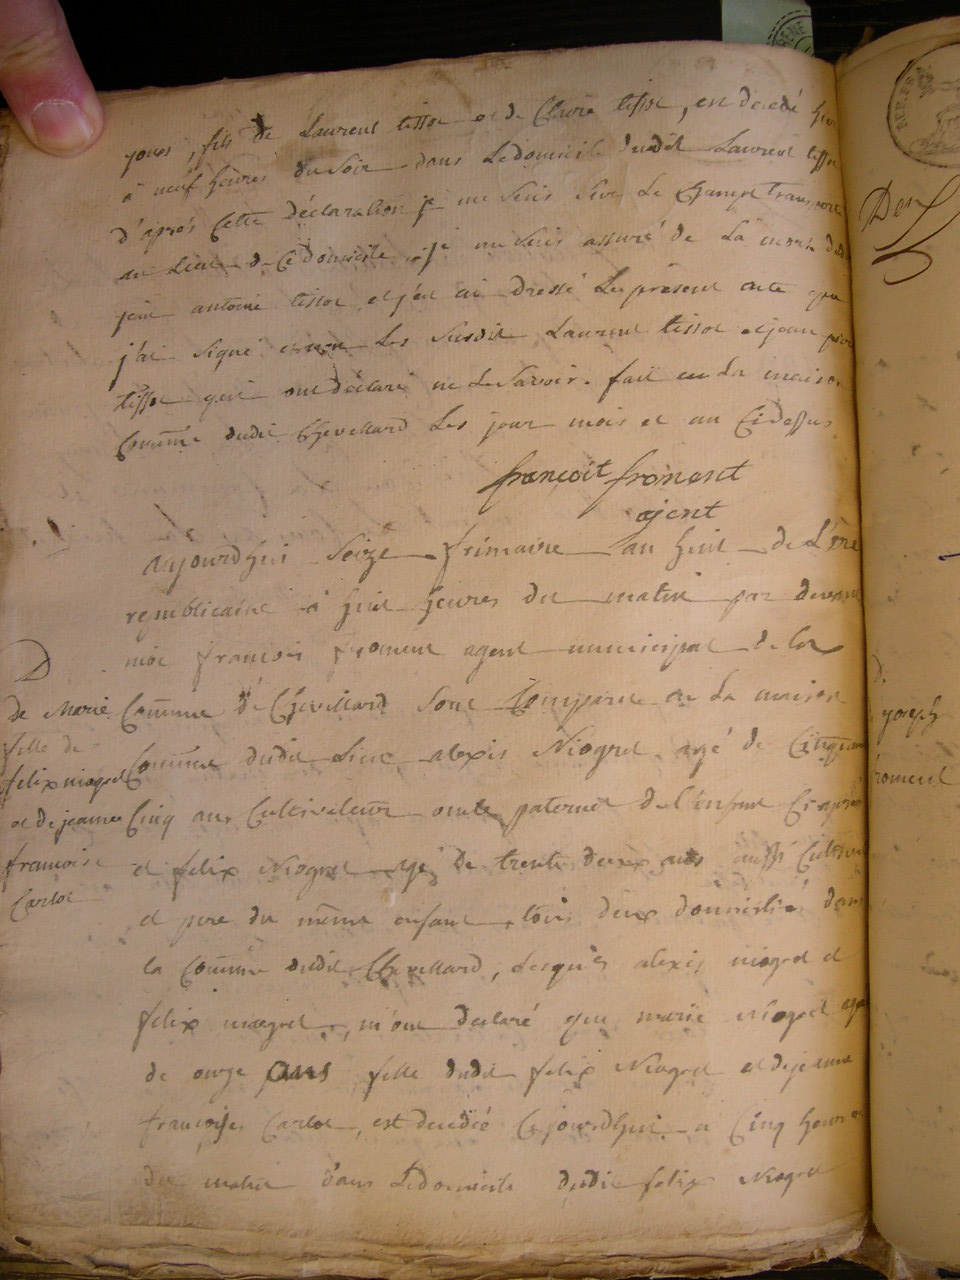 jours, fils de Laurent tissot et de Claire tissot, est decedé hier
à neuf heures du soir dans Ledomicile dudit Laurent tissot
d'après Cette déclaration je me suis sur Le Champ transporté
au Lieu de Ce domicile, je me suis assuré de La mort dudit
jean antoine tissot, et j'en ai dressé Le présent acte que
j'ai signé et non Les Susdits Laurent tissot et jean pierre
tissot qui ont déclaré ne Le Savoir. fait en La maison
Comm̄e dudit Chevillard Les jour mois et an Cidessus
françoit froment
ajent
aujourdhui Seize frimaire an huit de L'ère
republicaine à huit heures du matin par devant
moi francois froment agent municipal de la
Comm̄une de Chevillard sont Comparus en La maison
Comm̄une dudit Lieu alexis Niogret agé de Cinquante
Cinq ans Cultivateur oncle paternel de l'enfant
et felix Niogret agé de trente deux ans aussi
et pere du même enfant, tous deux domiciliés dans
la Comm̄une dudit Chevillard, Lesquels alexis niogret et
felix niogret, m'ont declaré que marie Niogret agée
de onze ans fille dudit felix Niogret et de jeanne
françoise Carlot, est decedée Cejourdhui a Cinq heures
du matin dans Ledomicile dudit felix Niogret
D
de Marie
fille de
felix niogret
et de jeanne
francoise
Carlot
REP. FR
Des
d.
joseph
froment